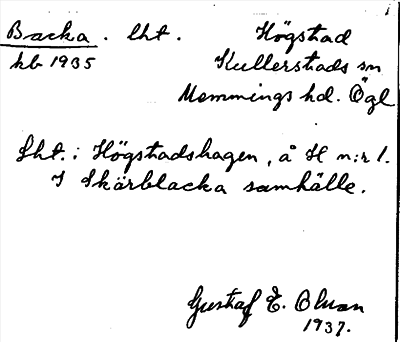 Backa. lht. Högstad
kb 1935 Kullerstads sn
Memmings hd. Ögl
Lht. i Högstadshagen, å H n:r 1.
I Skärblacka samhälle.
Gustaf E. Olson
1937.